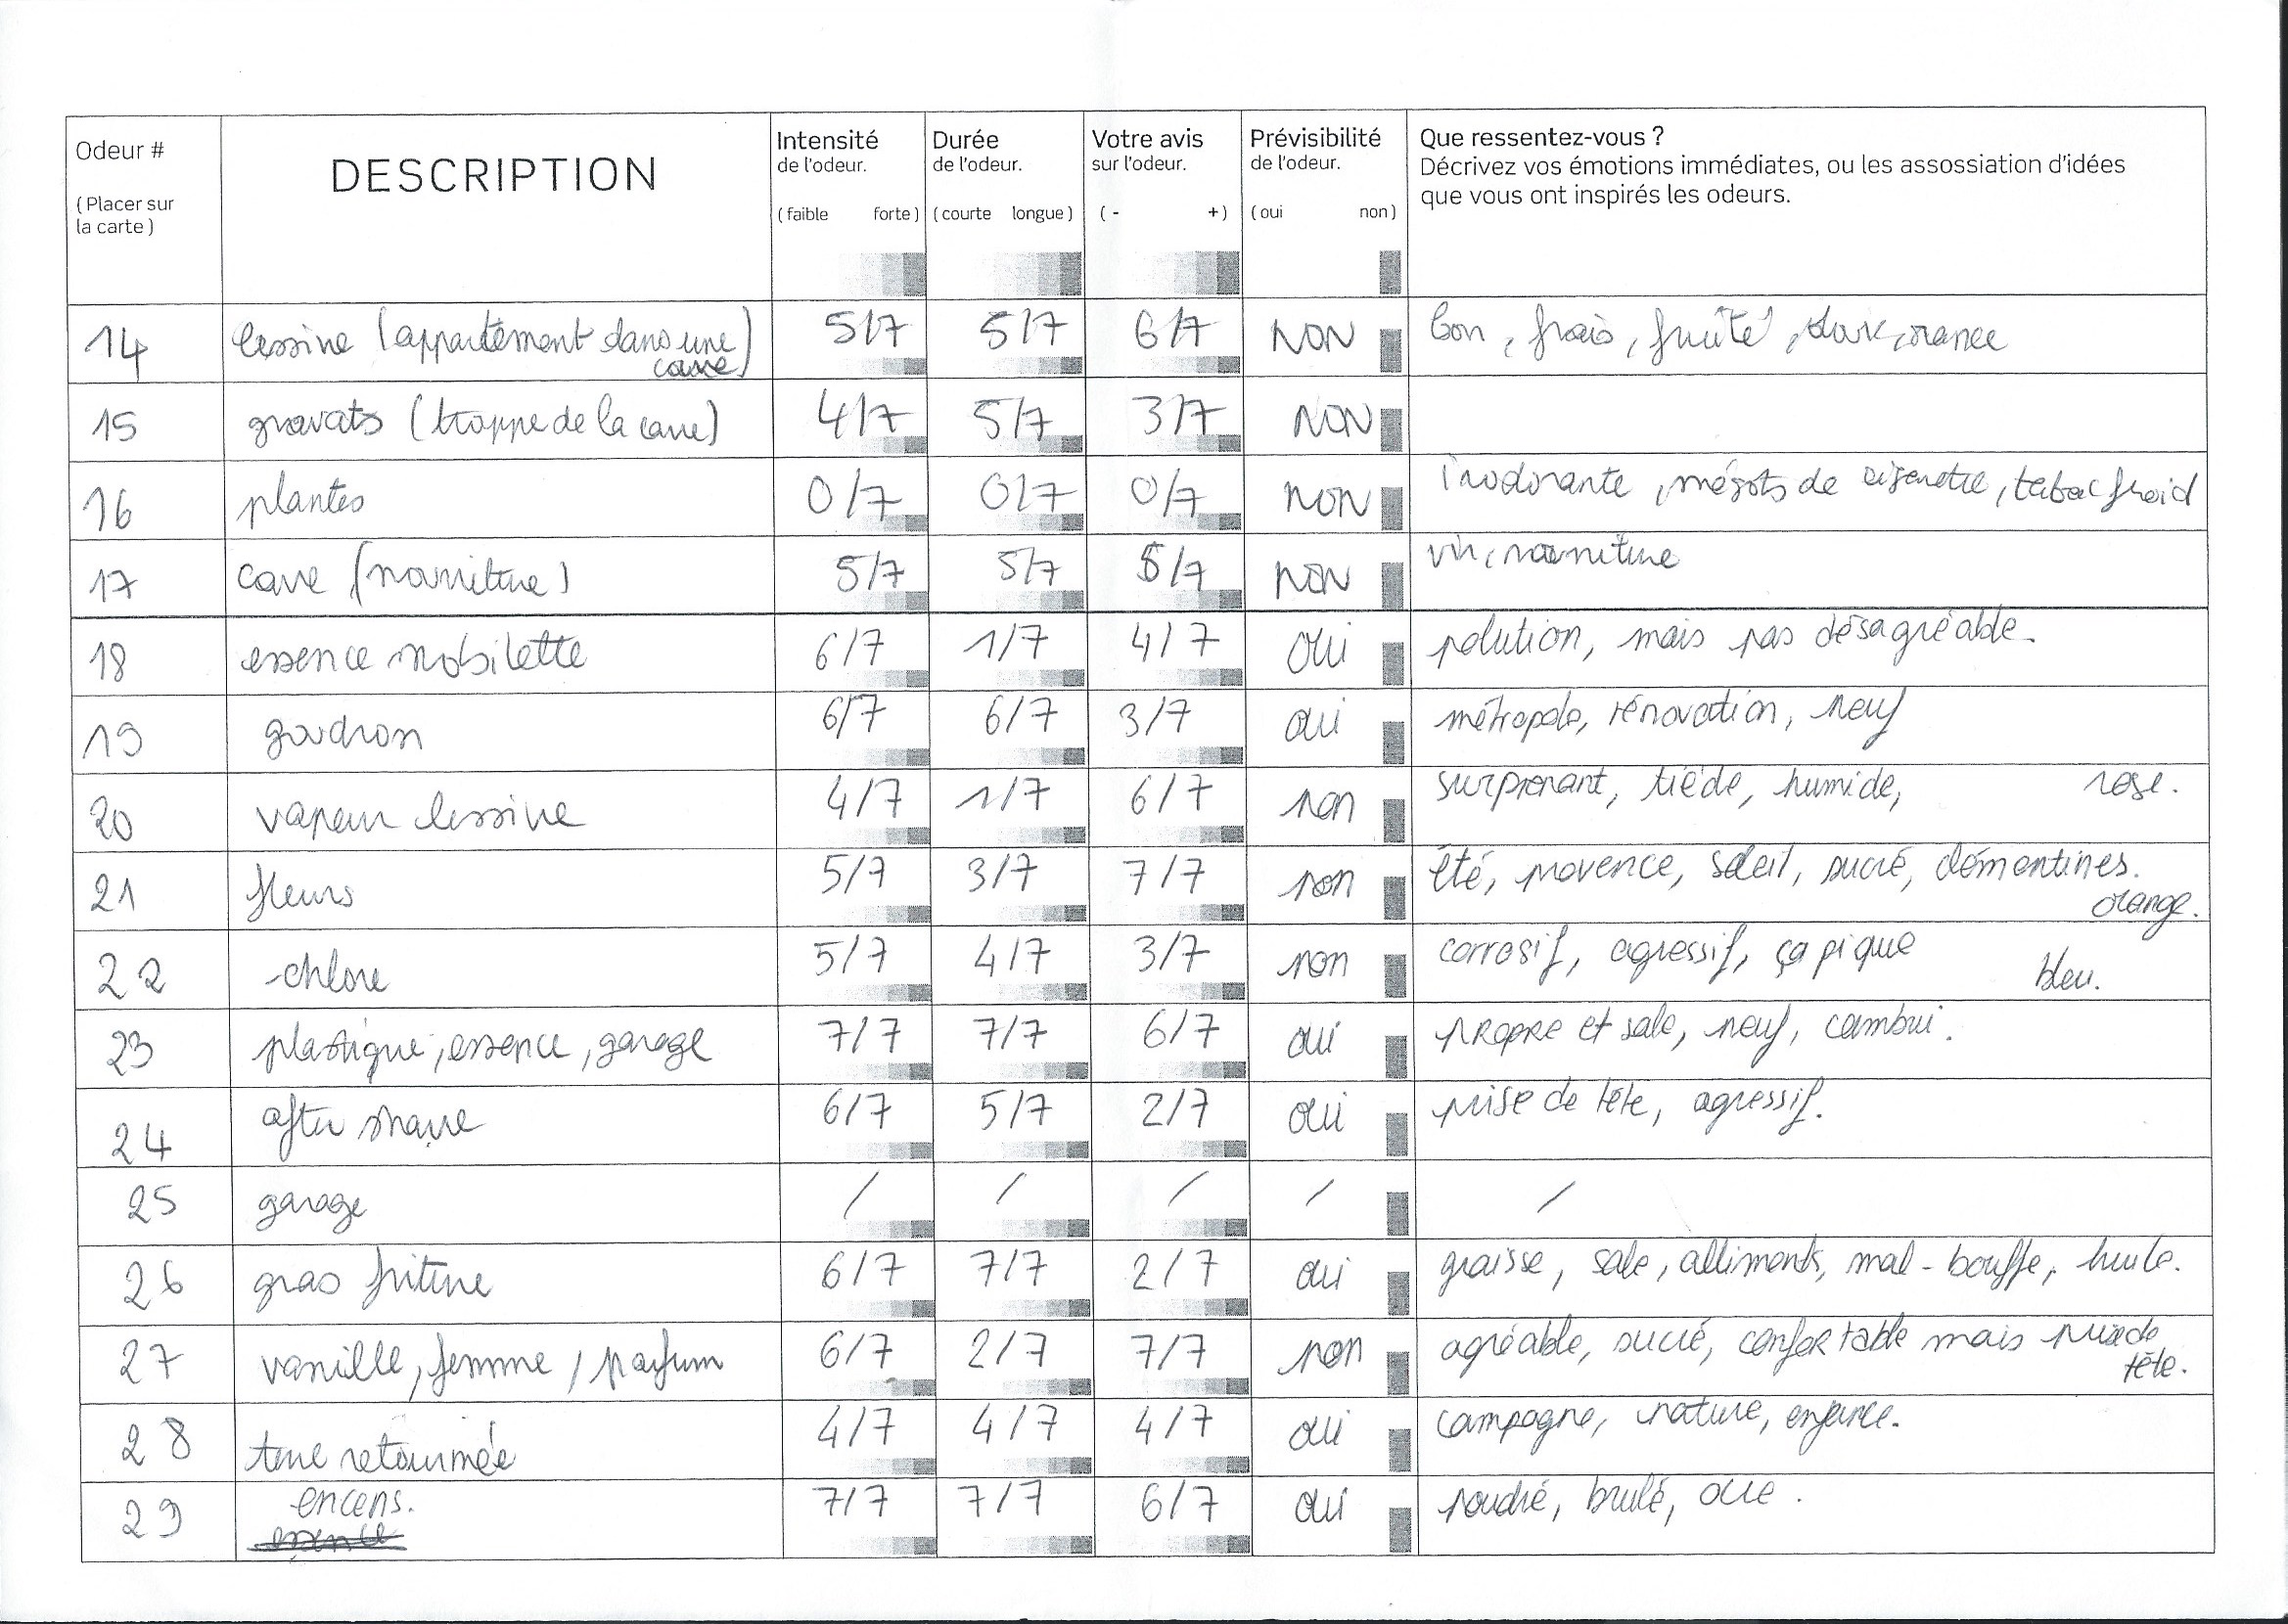 Odeur #
(Placer sur
la carte)
DESCRIPTION
Intensité
de l'odeur.
(faible forte)
Durée
de l'odeur.
(courte longue)
Votre avis
sur l'odeur.
(- +)
Prévisibilité
de l'odeur.
(oui non)
Que ressentez-vous ?
Décrivez vos émotions immédiates, ou les assossiation d'idées
que vous ont inspirés les odeurs.
14 lessine (appartement dans une cave) 5/7 5/7 6/7 NON bon, frais, fruité,
15 gravats (trappe de la cave) 4/7 5/7 3/7 NON
16 plantes 0/7 0/7 0/7 NON inodorante, mégots de cigarette, tabac froid
17 cave (nourriture) 5/7 5/7 5/7 NON vin, nourriture
18 essence mobilette 6/7 1/7 4/7 oui polution, mais pas désagréable.
19 goudron 6/7 6/7 3/7 oui métropole, rénovation, neuf
20 vapeur lessive 4/7 1/7 6/7 non surprenant, tiède, humide, rose.
21 fleurs 5/7 3/7 7/7 non été, provence, soleil, sucré, clémentines.
orange.
22 chlore 5/7 4/7 3/7 non corrosif, agressif, ça pique
bleu.
23 plastique, essence, garage 7/7 7/7 6/7 oui propre et sale, neuf, cambui.
24 after shave 6/7 5/7 2/7 oui prise de tête, agressif.
25 garage / / / / /
26 gras friture 6/7 7/7 2/7 oui graisse, sale, alliments, mal-bouffe, huile.
27 vanille, femme, parfum 6/7 2/7 7/7 non agréable, sucré, confortable mais prise de
tête.
28 terre retournée 4/7 4/7 4/7 oui campagne, nature, enfance.
29 encens. 7/7 7/7 6/7 oui poudré, brulé, ocre.
essence